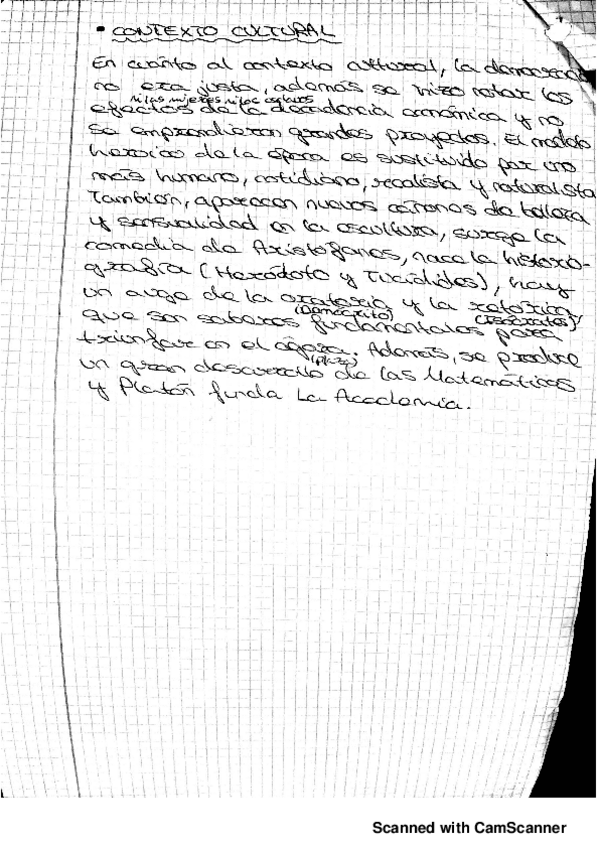 • CONTEXTO CULTURAL
En cuanto al contexto cultural, la democracia
no era justa, además se hizo notar los
ni las mujeres ni los esclavos
efectos de la decadencia económica y no
se emprendieron grandes proyectos. El modelo
heroico de la época es sustituido por uno
más humano, cotidiano, realista y naturalista
También, aparecen nuevos cánones de belleza
y sensualidad en la escultura, surge la
comedia de Aristófanes, nace la historio-
grafía (Heródoto y Tucídides), hay
un auge de la oratoria y la retórica
(Demócrito) (Isócrates)
que son saberes fundamentales para
triunfar en el ágora. Además, se produce
(plaza)
un gran desarrollo de las Matemáticas
y Platón funda La Academia.
Scanned with CamScanner